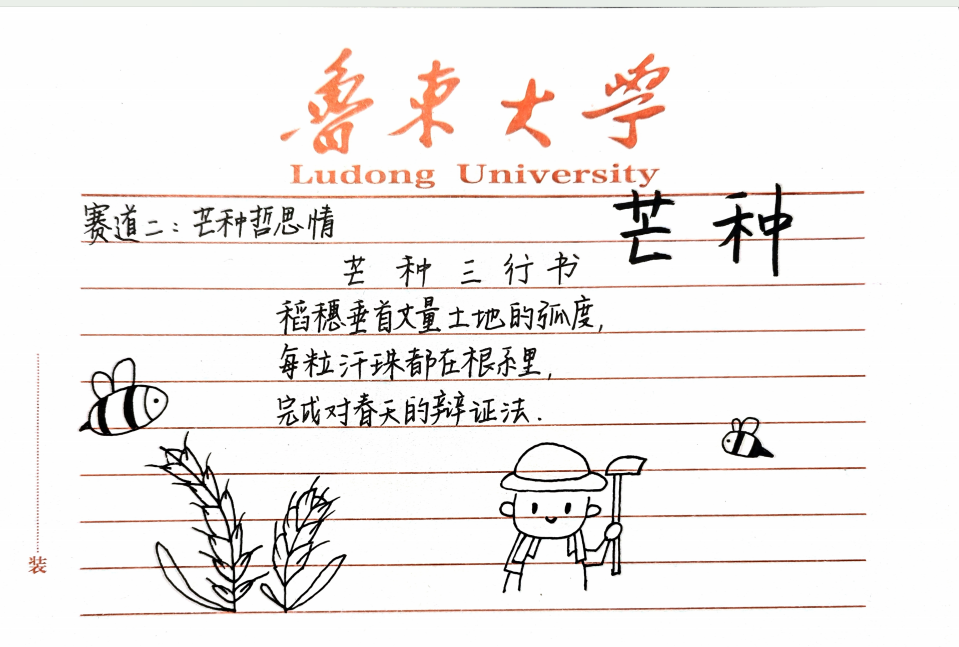 魯東大學
Ludong University
赛道二：芒种哲思情
芒 种
芒 种 三 行 书
稻穗垂首丈量土地的弧度，
每粒汗珠都在根系里，
完成对春天的辩证法.
装